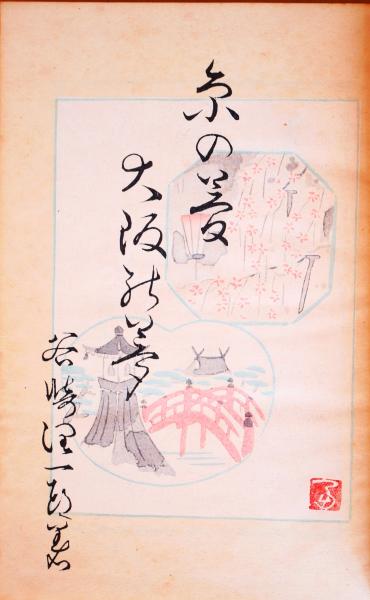 京の夢
大阪の夢
谷崎潤一郎著